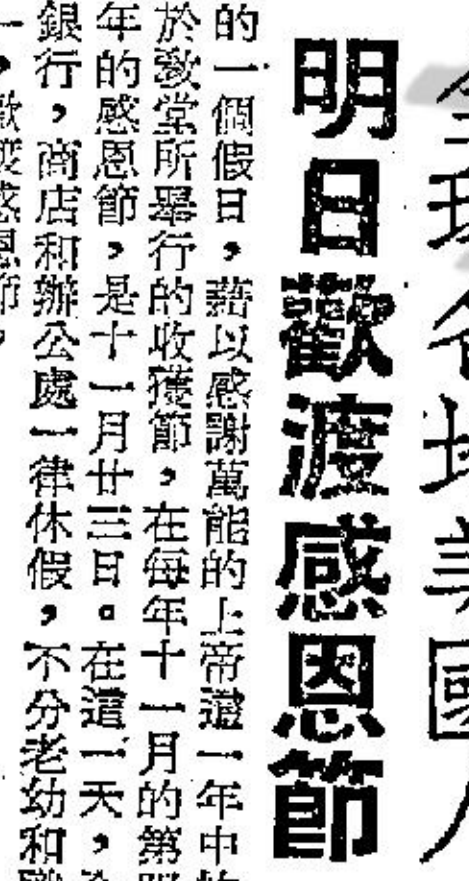 全球各地美國人
明日歡渡感恩節
的一個假日，藉以感謝萬能的上帝這一年中
於教堂所舉行的收獲節，在每年十一月的第
年的感恩節，是十一月廿三日。在這一天，
銀行，商店和辦公處一律休假，不分老幼和
感恩節，